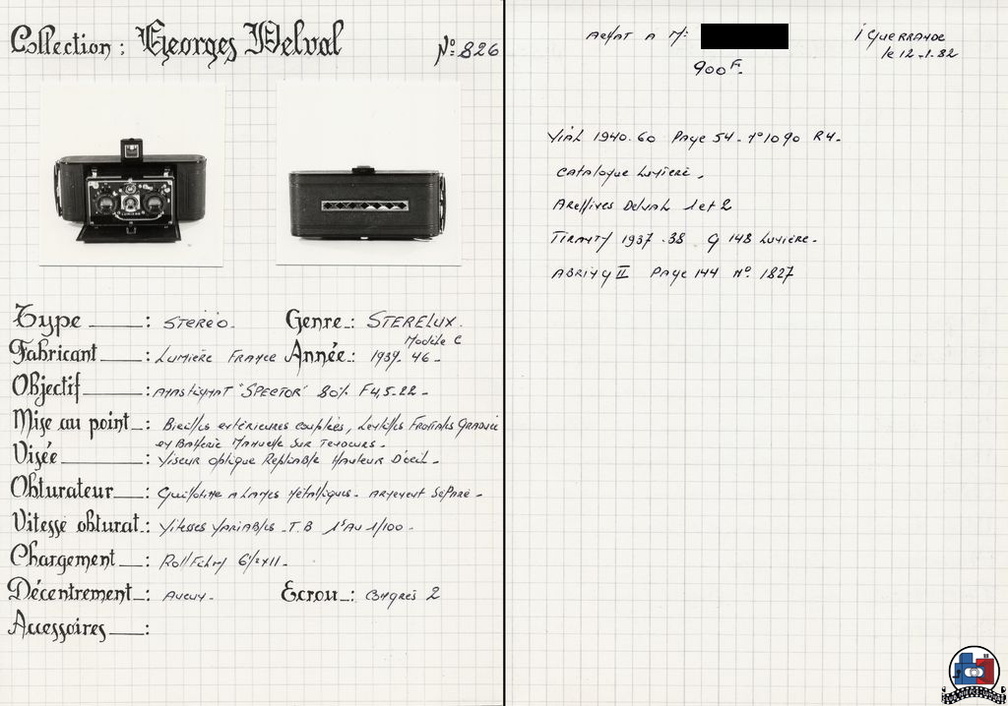 Collection : Georges Delval
N° 826
Type : STEREO.
Genre : STERELUX.
Modèle C
Fabricant : Lumière France
Année : 1939. 46 -
Objectif : ANASTIGMAT "SPECTOR" 80% F4,5-22 -
Mise au point : Bielles extérieures couplées, Lentilles Frontales Graduée
et Batterie Manuelle sur
Visée : Viseur optique Repliable Hauteur D'oeil -
Obturateur : Guillotine a Lames Métalliques - Armement Séparé -
Vitesse obturat. : Vitesses Variables - T. B 1s Au 1/100 -
Chargement : Roll Film 6 1/2 x 11 -
Décentrement : Aucun -
Ecrou : Congrès 2
Accessoires :
ACHAT A Mr
GUERRANDE
le 12-1-82
900 F.
VIAL 1940.60 Page 54 - N° 1090 R4 -
Catalogue Lumière.
Archives Delval 1 et 2
TIRANTY 1937.38 G 148 Lumière -
ABRING II Page 144 N° 1827